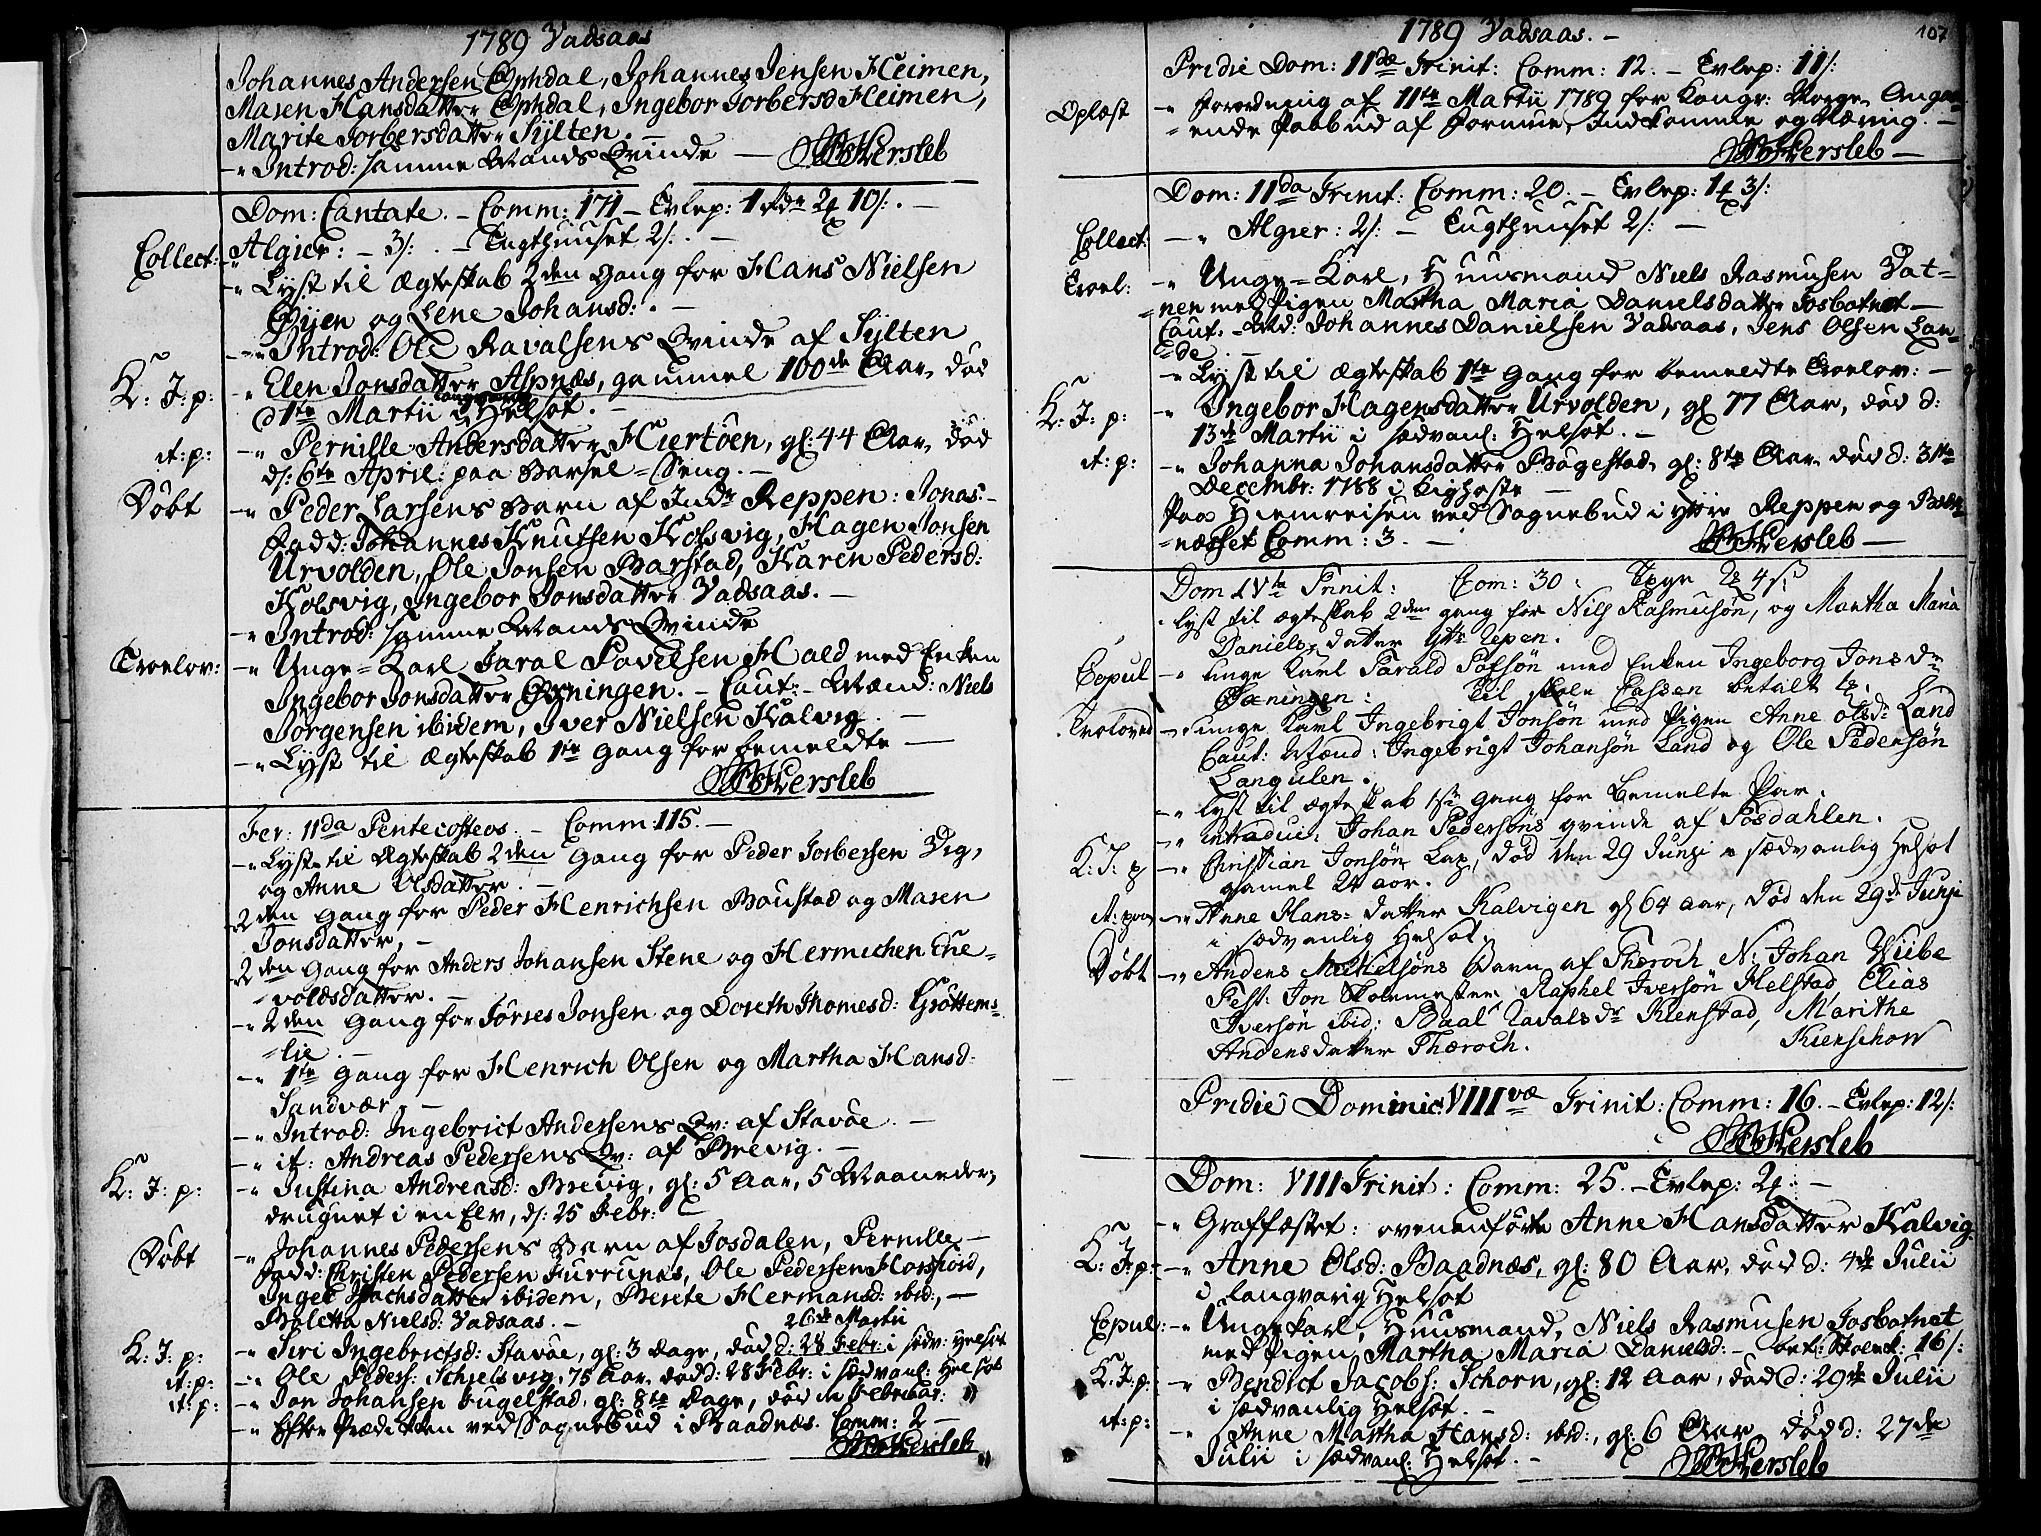 1789 Vadsaas
Johannes Andersen Ophdal, Johannes Jensen Heimen,
Masen Hansdatter Ophdal, Ingebor Torbersd Heimen,
Marite Torbersdatter Sylten. —
-" Introd: samme Mands Qvinde — Hersleb
Dom: Cantate. - Comm: 171 - Evlep: 1 rdr 2 10/. —
Collect: Algier: - 3/. - Tugthuuset 2/. —
-" Lyst til Ægteskab 2den Gang for Hans Nielsen
Øyen og Lene Johansd: . —
-" Introd: Ole Ravalsens Qvinde af Sylten
K: J: p: -" Elen Jonsdatter Aspnæs, gammel 100de Aar, død
d 1te Martii i langvarig Helsot. —
it: p: -" Pernille Andersdatter Hiertøen, gl: 44 Aar, død
d: 6te April: paa Barsel-Seng. —
Døbt -" Peder Larsens Barn af Indr Reppen: Jonas -
Fadd: Johannes Knutsen Kolsvig, Hagen Jonsen
Urvolden, Ole Jonsen Barstad, Karen Pedersd:
Kolsvig, Ingebor Jonsdatter Vadsaas. —
-" Introd: samme Mands Qvinde
Troelov: -" Unge-Karl Taral Pavelsen Hald med Enken
Ingebor Jonsdatter Gyningen. - Caut: - Mænd: Niels
Jørgensen ibidem, Iver Nielsen Kalvig. —
-" Lyst til Ægteskab 1te Gang for bemeldte —
Hersleb
Fer: IIda Pentecosteos. - Comm: 115. —
-" Lyst til Ægteskab 2den Gang for Peder Torbersen Vig,
og Anne Olsdatter. —
2den Gang for Peder Henrichsen Boustad og Masen
Jonsdatter, —
2den Gang for Anders Johansen Stene og Hermichen Ene-
-voldsdatter. —
-" 2den Gang for Torres Jonsen og Doreth Thomesd: Grøttems-
-lie. —
-" 1te Gang for Henrich Olsen og Martha Hansd:
Sandvær, —
-" Introd: Ingebrict Andersens Qv: af Stavøe. —
-" it: Andreas Pedersens Qv: af Brevig. —
K: J: p: -" Justina Andreasd: Brevig, gl: 5 Aar, 5 Maaneder,
drugnet i en Elv, d: 25 Febr:
Døbt -" Johannes Pedersens Barn af Josdalen, Pernille —
Fadd: Christen Pedersen Furrunes, Ole Pedersen Horsfiord,
Ingeb Isachsdatter ibidem, Berete Hermansd: ibid:, —
Boletta Nielsd: Vadsaas. — 26de Martii
K: J: p: -" Siri Ingebrictsd: Stavøe, gl: 3 Dage, død d: 28 Febr: i sedv: Helsot
it: p: -" Ole Peders: Schielsvig, 75 Aar død d: 28 Febr: i sædvanl: Helsot
it: p: -" Jon Johansen Fugelstad, gl: 8te Dage, død in Februar:
-" Efter Prædiken ved Sognebud i Baadnæs. Comm: 2 —
Hersleb
107
1789 Vadsaas. —
Pridie Dom: IIdæ Trinit: Comm: 12. - Evlep: 11/:
Oplæst -" Forordning af 11te Martii 1789 for Kongr: Norge, Angaa-
-ende Paabud af Formue, Indkomme og Næring. —
Hersleb —
Dom: IIda Trinit: Comm: 20. - Evlep: 1 3/:
Collect: -" Algier: 2/: - Tugthuuset 2/: —
Troel: -" Unge-Karl, Huusmand Niels Rasmusen Vat-
-nen med Pigen Martha Maria Danielsdatter Fosbotnet —
Caut. Md: Johannes Danielsen Vadsaas, Jens Olsen Lan-
-de. —
-" Lyst til Ægteskab 1te Gang for bemeldte Troelov: —
K: J: p: -" Ingebor Hagensdatter Urvolden, gl 77 Aar, død d:
13de Martii i sædvanl: Helsot. —
it: p: -" Johanna Johansdatter Bøgestad, gl: 8te Aar død d: 31te
Decembr: 1788 i Kighoste —
Paa Hiemreisen ved Sognebud i Yttre Reppen og Baad-
-næsset Comm: 3. — Hersleb —
Dom IVta Trinit: Com: 30: 4 ß
lyst til ægteskab 2den gang for Nils Rasmusøn, og Martha Maria
Daniels datter Ytt: Repen.
Copul -" unge Karl Tarald Pofsøn med Enken Ingeborg Jons dr
Gæningen: til skole Cassen betalt
Troloved - unge Karl Ingebrigt Jonsøn med Pigen Anne Olsd: Land
Caut: Mænd: Ingebrigt Johansøn Land og Ole Pedersøn
Langulen.
-" lyst til ægteskab 1ste gang for Bemelte Par.
-" introduc: Johan Pedersøns qvinde af Fosdahlen.
K: J: p -" Christian Jonsøn Lap, død den 29 Junji i sædvanlig Helsot
gamel 24 aar.
it: paa -" Anne Hans-datter Kalvigen gl 64 aar, død den 29de Junji
i sædvanlig Helsot.
Døbt -" Anders Mikkelsøns Barn af Therøch N: Johan Wiibe
Test: Jon Skolemester, Raphel Iversøn Helstad, Elias
Iversøn ibid: Baal Ravals dr Kienstad, Marithe
Andersdatter Therøch. Kierschow
Pridie Dominic: VIIIvæ Trinit: Comm: 16. - Evlep: 12/:
Hersleb
Dom: VIII Trinit: Comm: 25. - Evlep: 2 —
-" Graffæstet: ovenanførte Anne Hansdatter Kalvig.
K: J: p: -" Anne Olsd: Baadnæs, gl: 80 Aar, død d: 4de Julii
i langvarig Helsot
Copul: -" Ungekarl, Huusmand, Niels Rasmusen Fosbotnet
med Pigen Martha Maria Danielsd: - bet: Skolek: 16/:
K: J: p: -" Bendict Jacobs: Schorn, gl: 12 Aar, død d: 29de Julii
i sædvanlig Helsot. —
it: p: -" Anne Martha Hansd: ibid:, gl: 6 Aar død d: 27de
Julii i sædvanl: Helsot. — Hersleb